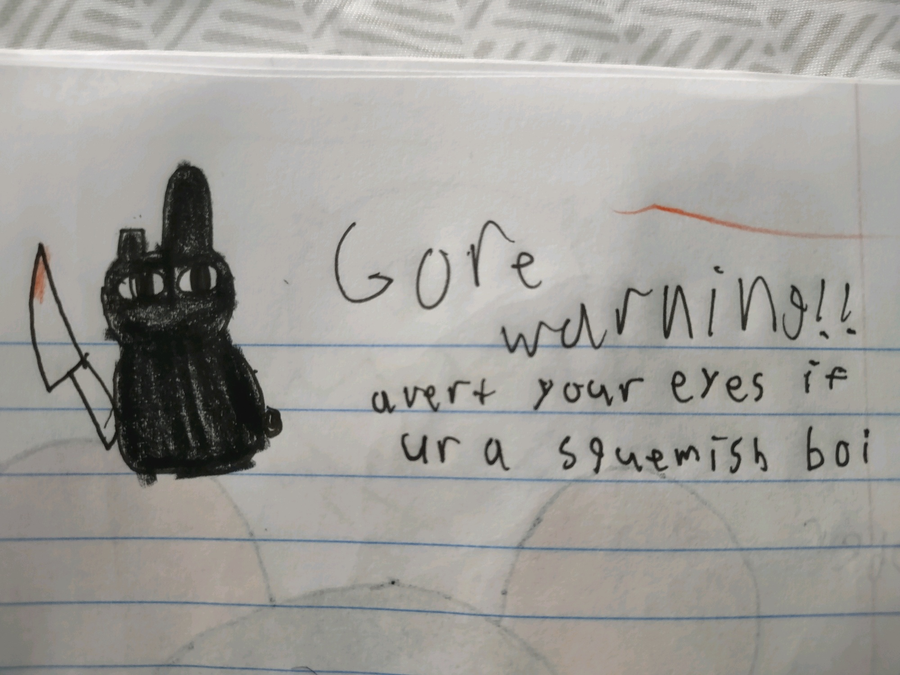 Gore
warning!!
avert your eyes if
ur a squemish boi